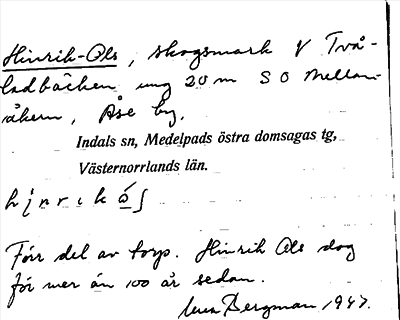 Hinrik-Ols, skogsmark V Två-
ladbäcken ung 20 m S O Mellan-
åkern, Åse by.
Indals sn, Medelpads östra domsagas tg,
Västernorrlands län.
Förr del av torp. Hinrik Ols dog
för mer än 100 år sedan.
Bergman 1947.